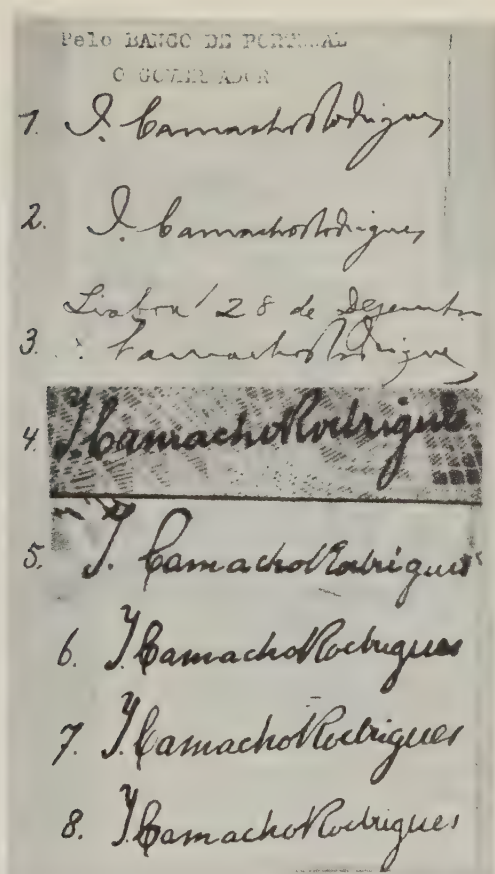 Pelo BANCO DE PORTUGAL
O GOVERNADOR
1. I. Camacho Rodrigues
2. I. Camacho Rodrigues
Lisboa 28 de Dezembro
3. Camacho Rodrigues
4. I. Camacho Rodrigues
5. I. Camacho Rodrigues
6. I. Camacho Rodrigues
7. I. Camacho Rodrigues
8. I. Camacho Rodrigues